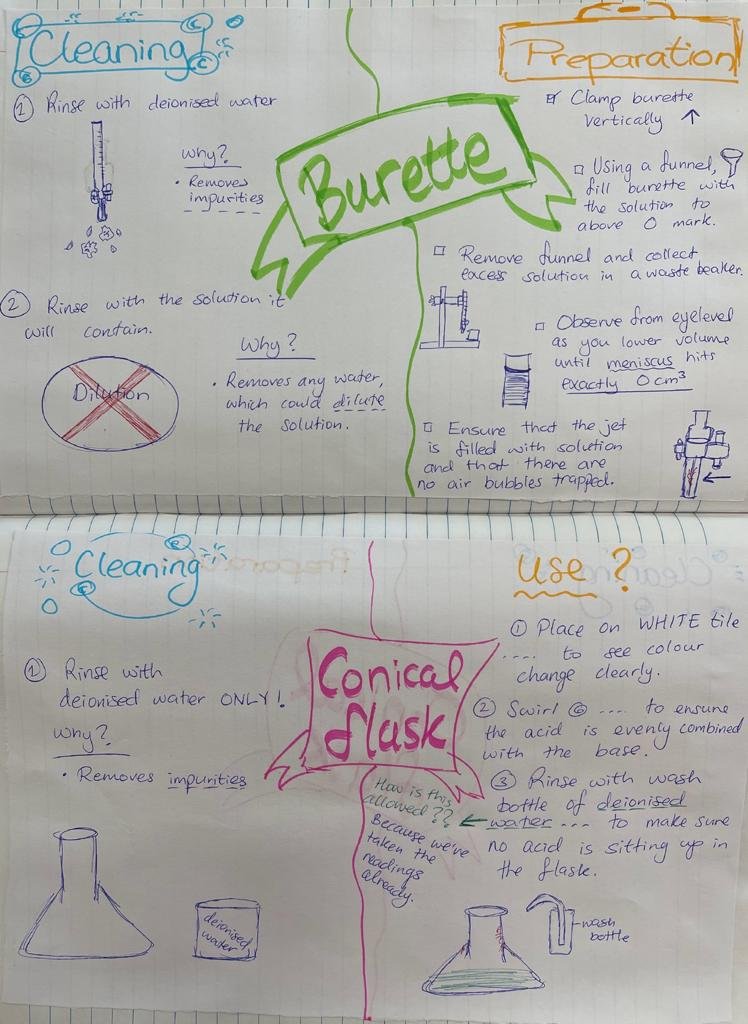 Cleaning
① Rinse with deionised water
Why?
• Removes
impurities
② Rinse with the solution it
will contain.
Dilution
Why?
• Removes any water,
which could dilute
the solution.
Burette
Preparation
Clamp burette
vertically ↑
Using a funnel,
fill burette with
the solution to
above 0 mark.
Remove funnel and collect
excess solution in a waste beaker.
Observe from eyelevel
as you lower volume
until meniscus hits
exactly 0 cm³
Ensure that the jet
is filled with solution
and that there are
no air bubbles trapped.
Cleaning
① Rinse with
deionised water ONLY!
Why?
• Removes impurities
deionised
water
Conical
flask
Use?
① Place on WHITE tile
.... to see colour
change clearly.
② Swirl .... to ensure
the acid is evenly combined
with the base.
③ Rinse with wash
bottle of deionised
water .... to make sure
no acid is sitting up in
the flask.
How is this
allowed??
Because we've
taken the
readings
already.
wash
bottle